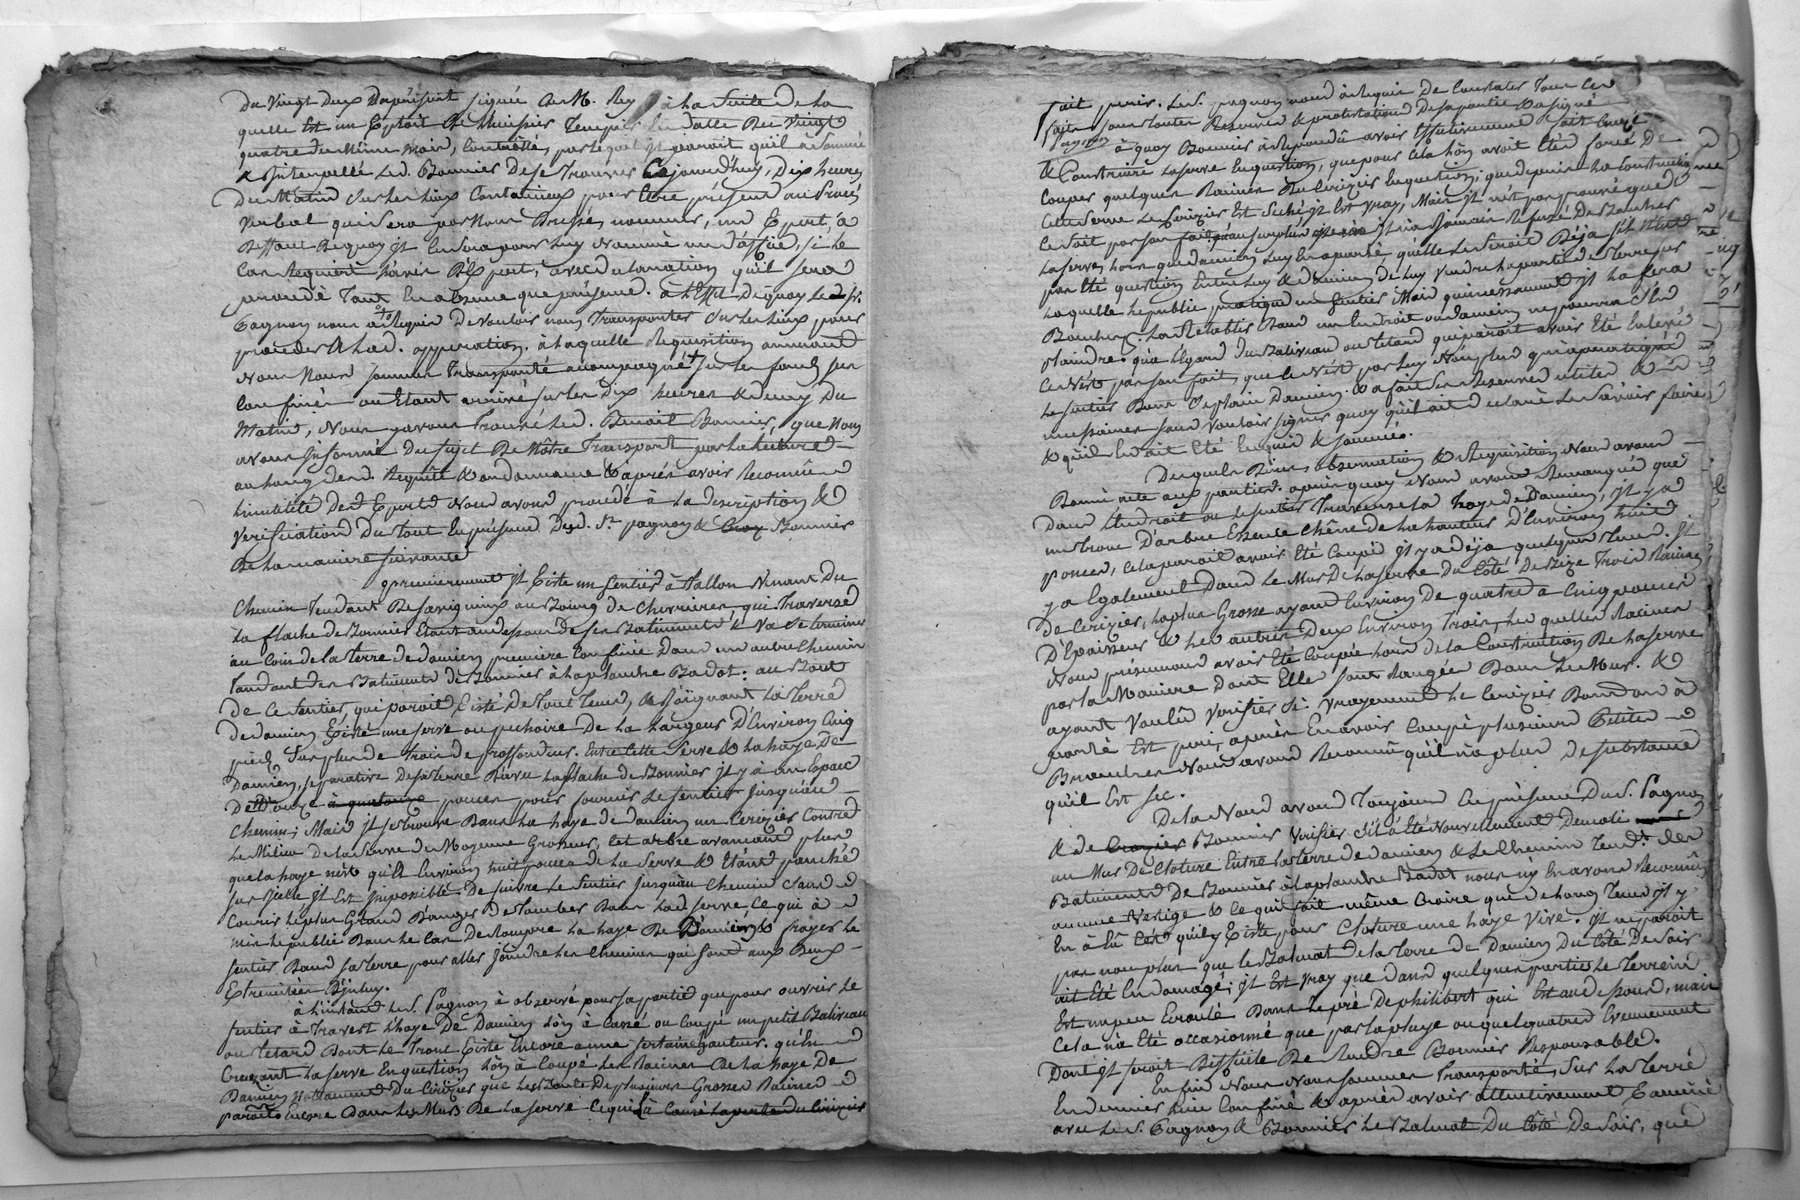 Du Vingt deux Duprésent signée de M. Rey à la suite de la
quelle Est un Exploit de l'huissier Tempier En datte du vingt
quatre du même mois, Controllé, par lequel Jl paroit qu'il a sommé
& Jnterpellé led. Bonnier de se trouver Cejourd'huy, Dix heures
Du Matin sur les lieux Contentieux pour Etre présent au Procès
Verbal qui sera par Nous Dressé, nommer, un Expert, à
Deffaut de quoy Jl En sera pour luy Nommé un d'office, si le
Cas Requiert
procedé Tant En absence que présence. à l'Effet de quoy led. Sr.
Pagnon nous a Requis De vouloir nous Transporter sur les lieux pour
proceder A lad. opperation. à laquelle Requisition
Nous Nous sommes Transporté accompagné sur les fonds sus
Confinés ou Etant arrivé sur les Dix heures & demy du
Matin, Nous y avons Trouvé led. Benoit Bonnier, que Nous
avons Jnformé du sujet De Nôtre Transport par la lecture
au long desd. Requête & ordonnance & après avoir Reconnu
l'inutilité des Experts Nous avons procédé à la description &
Verification du Tout En présence Dud. Sr. pagnon & Bonnier
De la maniere suivante
premierement Jl Existe un sentier à Tallon Venant Du
Chemin Tendant de Savigny au Bourg de Chevrieres qui Traverse
La flache de Bonnier Etant au dessous de ses Batiments & Va se terminer
au Coin de la Terre de damien première Confinée Dans un autre Chemin
Tandant des Batiments de Bonnier à la planche Badot: au Bout
De Ce Sentier, qui paroit Existé De Tout Tems, & Joignant la Terre
de Damien Existe une serve ou puchoire De la Largeur D'Environ Cinq
pieds sur plus de Trois de proffondeur. Entre Cette serve & la haye De
Damien, separative De sa Terre D'avec la flache de Bonnier Jl y à un Espace
De onze à quatorze pouces pour fournir le sentier Jusqu'au
Chemin; Mais Jl se trouve Dans la haye de damien un Cerizier Contre
Le Milieu de la serve de Moyenne Grosseur, Cet arbre avancant plus
que la haye n'est qu'à Environ huit pouces de la serve & Etant panché
sur Jcelle Jl Est Jmpossible De suivre le sentier Jusqu'au Chemin sans
Courir le plus Grand Danger de Tomber Dans lad. serve, Ce qui à
mis le public Dans le Cas De Rompre La haye De Damien & frayer le
sentier Dans sa Terre pour aller joindre les Chemins qui sont aux Deux
Extremitées D'jceluy.
à l'instant led. Pagnon à observé pour sa partie que pour ouvrir le
sentier à Travers l'haye De Damien l'on à Cassé ou Coupé un petit Baliveau
ou letard Dont le Tronc Existe Encore a une Certaine hauteur. qu'En
Creuzant la serve En question l'on à Coupé les Racines De la haye De
Damien notament Du Cerizier que les Bouts De plusieurs Grosses Racines
paroitre Encore Dans les Murs De la serve. Ce qui à Causé la perte du Cerizier
fait perir. Led. pagnon nous à Requis De Constater Tous les
faits sous toutes Reserves & protestations De sa partie & a signé
pagnon
à quoy Bonnier à Repondu avoir Effectivement fait Creuzé
& Construire La serve En question, que pour Cela l'on avoit Eté forcé De
Couper quelques Racines du Cerizier En question; que depuis la Construction
Cette Serve le Cerizier Est seché Jl Est vray, Mais Jl n'est pas prouvé que
Ce soit par son fait; qu'au surplus Jl n'a Jamais Refusé De Boucher
La serve, lors que damien luy En a parlé qu'elle le seroit Déja s'il N'eut
pas Eté question Entre luy & damien de luy Vendre la partie de Terre sur
Laquelle le public pratique un sentier Mais qu'incessament Jl la fera
Boucher & la Retablir Dans un Endroit ou damien ne pourra s'En
plaindre. qu'à l'Egard du Baliveau ou letard qui paroit avoir Eté Enlevé
Ce N'est par son fait, que Ce N'est pas luy Non plus qui à pratiqué
Le sentier Dans Ce plain Damien. & a fait ses Reserves utiles &
necessaires sans vouloir signer quoy qu'il ait declaré le sçavoir faire
& qu'il En ait Eté Enquis & sommé.
Desquels Dires, observation & Requisition Nous avons
Donné acte aux parties. après quoy Nous avons Remarqué que
Dans l'Endroit ou le sentier Traverse la haye de Damien, Jl y a
un Tronc D'arbre Essence Chêne de la hauteur D'Environ huit
pouces, Cela paroit avoir Eté Coupé Jl y a déja quelque Tems. Jl
y a Egalement Dans le Mur De la serve Du Côté De Bize Trois Racines
De Cerizier, la plus Grosse ayant Environ De quatre à Cinq pouces
D'Epaisseur & les autres Deux Environ Trois, les quelles Racines
Nous présumons avoir Eté Coupée lors de la Construction De la serve
par la Maniere Dont Elle sont Rangée Dans le Mur. &
ayant Voulû Verifier si Vrayement le Cerizier Dont on à
parlé Est peri, après En avoir Coupé plusieurs Petites
Branches Nous avons Reconnu qu'il n'a plus de substance
qu'il Est sec.
De la Nous avons Toujours En présence Du S. Pagnon
& de Crozier Bonnier Verifier s'il à Eté Nouvellement Demoli
un Mur De Cloture Entre la Terre de damien & le Chemin Tend.t des
Batiments De Bonnier à la planche Badot nous n'y En avons Reconnu
aucune Vestige & Ce qui fait même Croire que de long Tems Jl n'y
En à Eû C'est qu'il y Existe pour Cloture une haye Vive. Jl ne paroit
pas non plus que le Balmat de la Terre de Damien Du Côté De Soir
ait Eté Endomagé; Jl Est vray que dans quelques parties le Terrein
Est un peu Ecroulé Dans le pré De philibert qui Est au dessous, mais
Cela n'a Eté occasionné que par la pluye ou quelqu'autres Evenement
Dont Jl seroit Difficile De Rendre Bonnier Responsable.
En fin Nous Nous sommes Transporté, Sur la Terre
En dernier lieu Confiné & après avoir attentivement Examiné
avec led. Pagnon & Bonnier le Balmat Du Côté De Soir, que